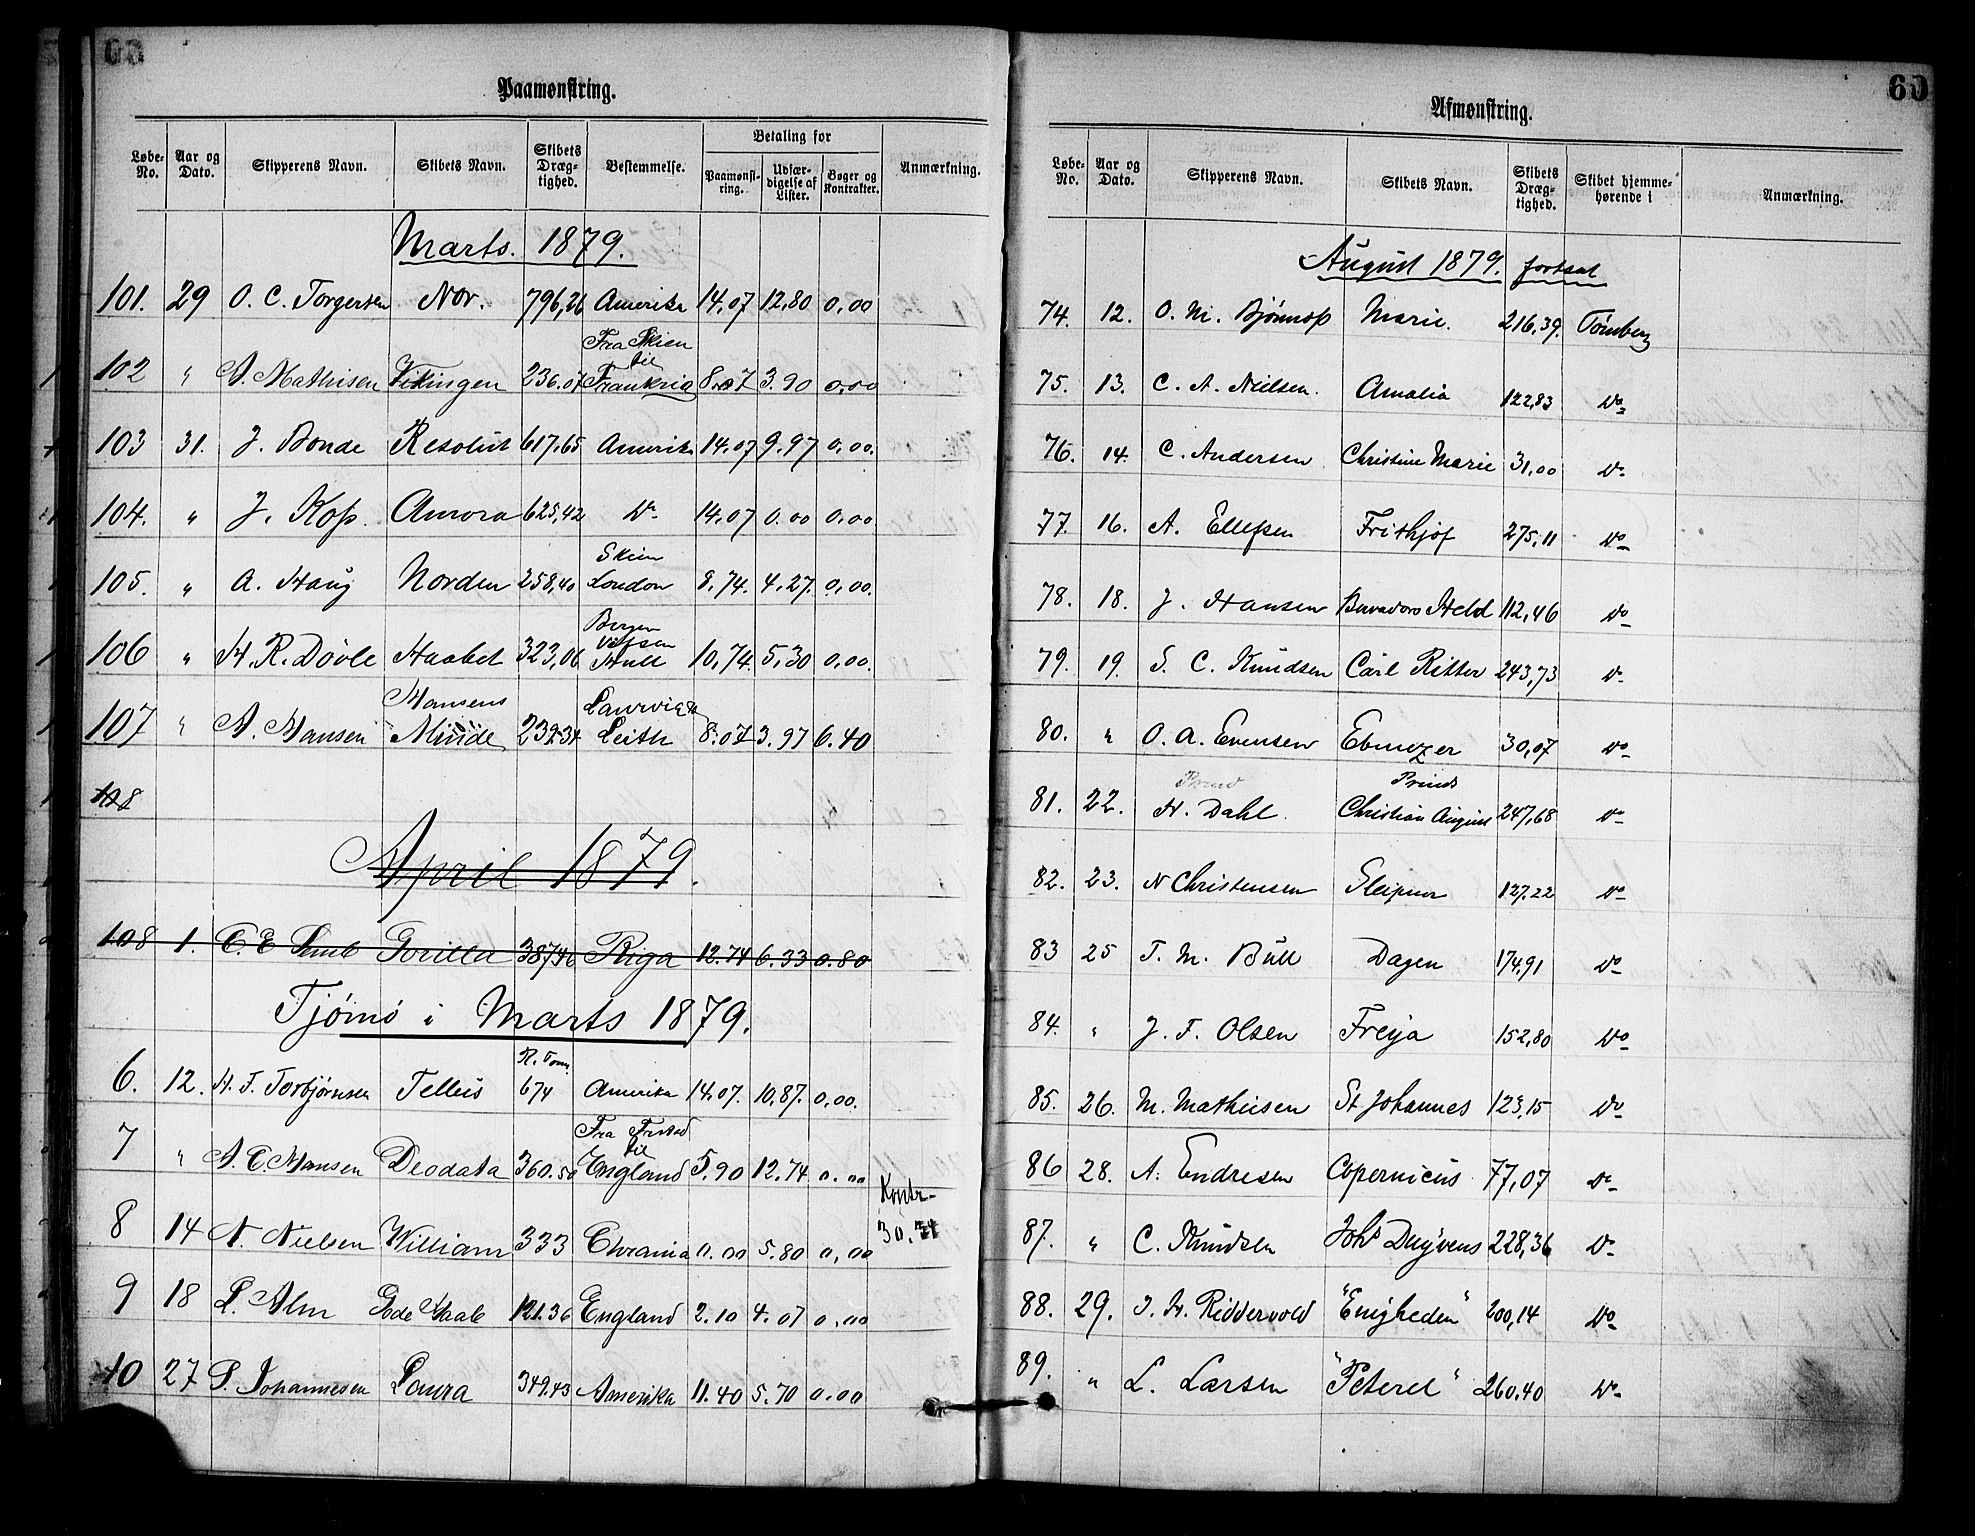 60
Paamønstring.
Løbe-No. Aar og Dato. Skipperens Navn. Skibets Navn. Skibets Dræg-tighed. Bestemmelse. Betaling for Paamønst-ring. Udfær-digelse af Lister. Bøger og Kontrakter. Anmærkning.
Marts. 1879.
101. 29 O. C. Torgersen Nor. 796,26 Amerika 14,07 12,80 0,00
Fra Skien
til
102 " A. Mathisen Vikingen 236.07 Frankrig 8.07 3.90 0,00
103 31. J. Bonde Resolut 617.65 Amerika 14.07 9.97 0,00.
104. " J. Kop. Aurora 625,42 Do 14,07 0.00 0,00.
Skien
105. " A. Haug Norden 258,40 London 8,74. 4,27. 0,00.
Bergen
106 " H. R. Dövle Haabet 323,06 Hull 10,74. 5,30 0,00.
Hansens Laurvig
107 " A. Hansen Minde 239.34 Leith 8.07 3.97 6.40
108
April 1879.
108 1. C. E. Gorilla 387,46 Riga 12.74 6.33 0.80
Tjømø i Marts 1879.
R. Tonn.
6. 12. H. F. Torbjørnsen Tellus 674 Amerika 14,07. 10,87. 0,00.
Fra
til
7 " A. C. Hansen Deodata 360.50 England 5.90 12.74 0.00
Kontr.
8 14 N. Nielsen William 333 0.00 5.80 0,00 30.
9 18 L. Alm Gode Haab 121.36 England 2.10 4.07 0,00
10 27 P. Johannesen Laura 349.43 Amerika 11.40 5.70 0.00
60
Afmønstring.
Løbe-No. Aar og Dato. Skipperens Navn. Skibets Navn. Skibets Dræg-tighed. Skibet hjemme-hørende i Anmærkning.
August 1879. fortsat
74. 12. O. M. Marie. 216,39. Tønsberg
75. 13. C. A. Nielsen. Amalia 122,83 Do
76. 14. C. Andersen Christine Marie 31,00 Do
77. 16. A. Ellefsen Frithjof 275,11 Do
78. 18. J. Hansen Held 112,46 Do
79. 19. S. C. Knudsen Carl Ritter 243,73 Do
80. " O. A. Evensen Ebenezer 30,07 Do
Prinds
81. 22. H. Dahl. Christian August 247,68 Do
82. 23. N Christensen Sleipner 127.22 Do
83 25 T. M. Bull Dagen 174.91 Do
84. " J. F. Olsen Freya 152,80 Do
85. 26. M. Mathisen St Johannes 123,15 Do
86 28. A. Endresen Copernicus 77,07 Do
87. " C. Knudsen Johs 228,36 Do
88. 29. J. H. Riddervold "Enigheden" 200,14 Do
89. " L. Larsen "Peterel" 260.40 Do